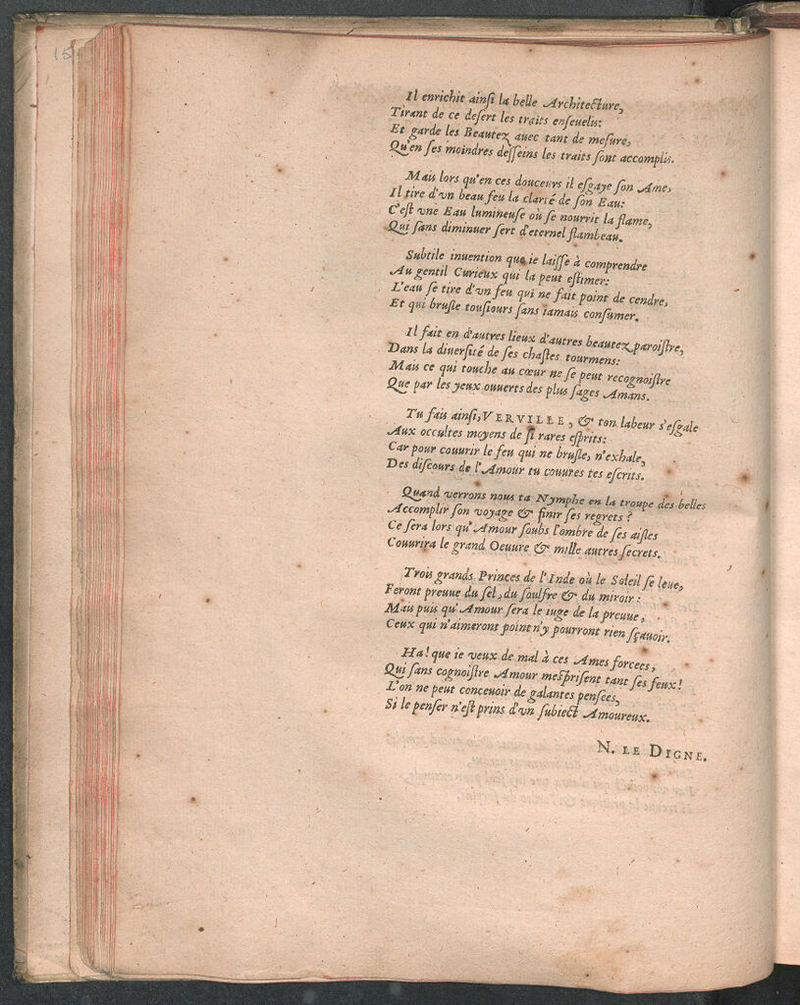 15
Il enrichit ainſi la belle Architecture,
Tirant de ce deſert les traits enſeuelis:
Et garde les Beautez auec tant de meſure,
Qu'en ſes moindres deſſeins les traits ſont accomplis.
Mais lors qu'en ces douceurs il eſgaye ſon Ame,
Il tire d'vn beau feu la clarté de ſon Eau:
C'eſt vne Eau lumineuſe où ſe nourrit la flame,
Qui ſans diminuer ſert d'eternel flambeau.
Subtile inuention que ie laiſſe à comprendre
Au gentil Curieux qui la peut eſtimer:
L'eau ſe tire d'vn feu qui ne fait point de cendre,
Et qui bruſle touſiours ſans iamais conſumer.
Il fait en d'autres lieux d'autres beautez paroiſtre,
Dans la diuerſité de ſes chaſtes tourmens:
Mais ce qui touche au cœur ne ſe peut recognoiſtre
Que par les yeux ouuerts des plus ſages Amans.
Tu fais ainſi, VERVILLE, & ton labeur s'eſgale
Aux occultes moyens de ſi rares eſprits:
Car pour couurir le feu qui ne bruſle, n'exhale,
Des diſcours de l'Amour tu couures tes eſcrits.
Quand verrons nous ta Nymphe en la troupe des belles
Accomplir ſon voyage & finir ſes regrets?
Ce ſera lors qu'Amour ſoubs l'ombre de ſes aiſles
Couurira le grand Oeuure & mille autres ſecrets.
Trois grands Princes de l'Inde où le Soleil ſe leue,
Feront preuue du ſel, du ſoulfre & du miroir:
Mais puis qu'Amour ſera le iuge de la preuue,
Ceux qui n'aimeront point n'y pourront rien ſçauoir.
Ha! que ie veux de mal à ces Ames forcees,
Qui ſans cognoiſtre Amour meſpriſent tant ſes feux!
L'on ne peut conceuoir de galantes penſees,
Si le penſer n'eſt prins d'vn ſubiect Amoureux.
N. LE DIGNE.